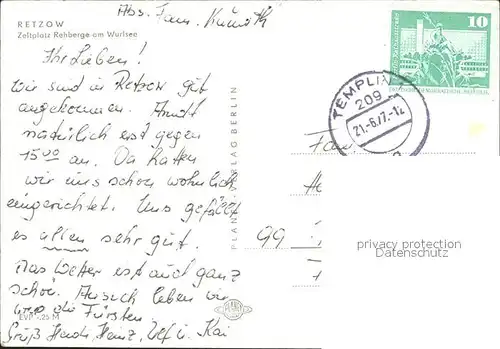 Abs. Fam. Kunoth
RETZOW
Zeltplatz Rehberge am Wurlsee
10
TEMPLIN
209
21.-6.77.-12
Ihr Lieben!
Wir sind in Retzow gut
angekommen. Arndt
natürlich erst gegen
15.00 an. Da hatten
wir uns schon wohnlich
eingerichtet. Uns gefällt
es allen sehr gut.
Das Wetter ist auch ganz
schön. Ansich leben wir
wie die Fürsten.
Gruß Heidi, Heinz, Ulf u. Kai
EVP -,25 M
PLANET-VERLAG BERLIN
PLANET
Fam.
99
privacy protection
Datenschutz